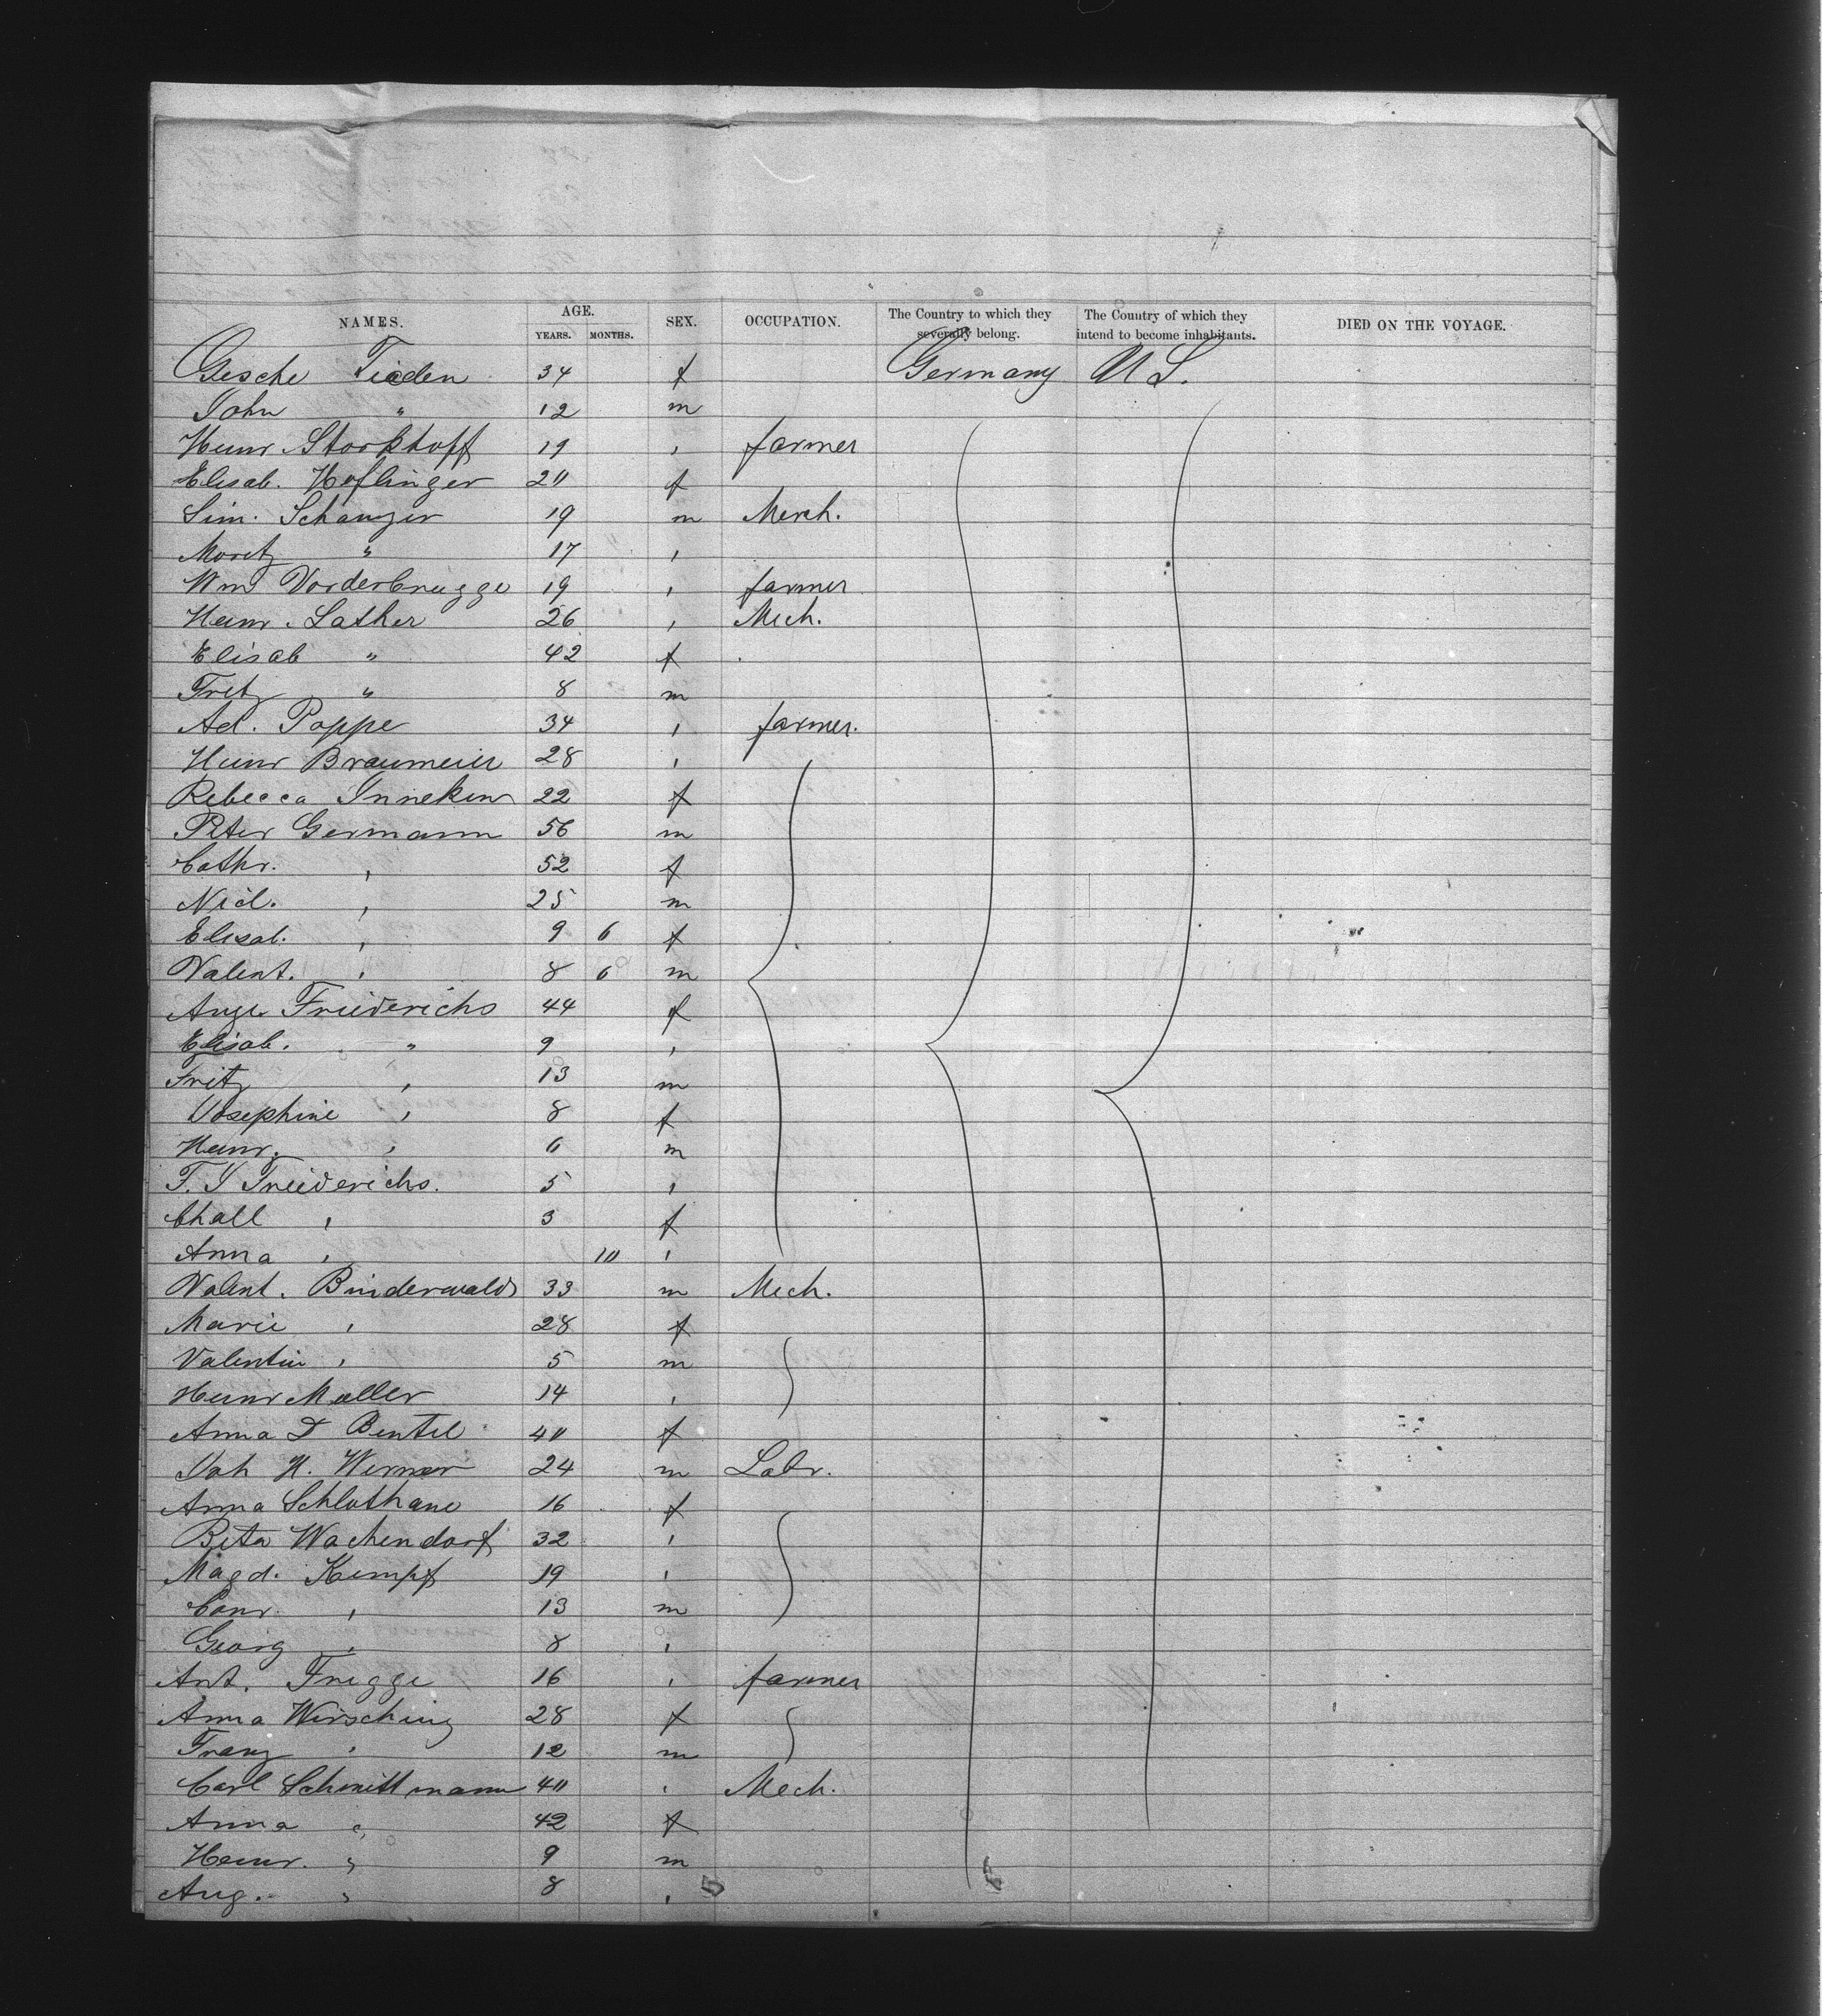 NAMES. AGE. YEARS. MONTHS. SEX. OCCUPATION. The Country to which they severally belong. The Country of which they intend to become inhabitants. DIED ON THE VOYAGE.
Gesche Tiaden 34 f Germany U S.
John " 12 m
Heinr Storkhoff 19 , farmer
Elisab. Hoflinger 20 f
Sim. Schanzer 19 m Merch.
Moritz " 17 ,
Wm Vorderbrugge 19 , farmer
Heinr. Lather 26 , Mech.
Elisab " 42 f
Fritz " 8 m
Ad. Poppe 34 , farmer.
Heinr Braumeier 28 ,
Rebecca Inneken 22 f
Peter Germann 56 m
Cathr. , 52 f
Nicl. , 25 m
Elisab. , 9 6 f
Valent. , 8 6 m
Ange Friederichs 44 f
Elisab. " 9 ,
Fritz , 13 m
Josephine , 8 f
Heinr. , 6 m
F. J Friederichs. 5 ,
, 3 f
Anna , 10 ,
Valent. Binderwald 33 m Mech.
Marie , 28 f
Valentin , 5 m
Heinr Muller 14 ,
Anna D Bentel 40 f
Joh H. Werner 24 m Labr.
Anna Schlothane 16 f
Beta Wachendorf 32 ,
Magd. Kempf 19 ,
Conr. , 13 m
Georg , 8 ,
Ant. Frigge 16 , farmer
Anna Wirsching 28 f
Franz , 12 m
Carl Schmittmann 40 , Mech.
Anna " 42 f
Heinr. " 9 m
Aug. " 8 ,